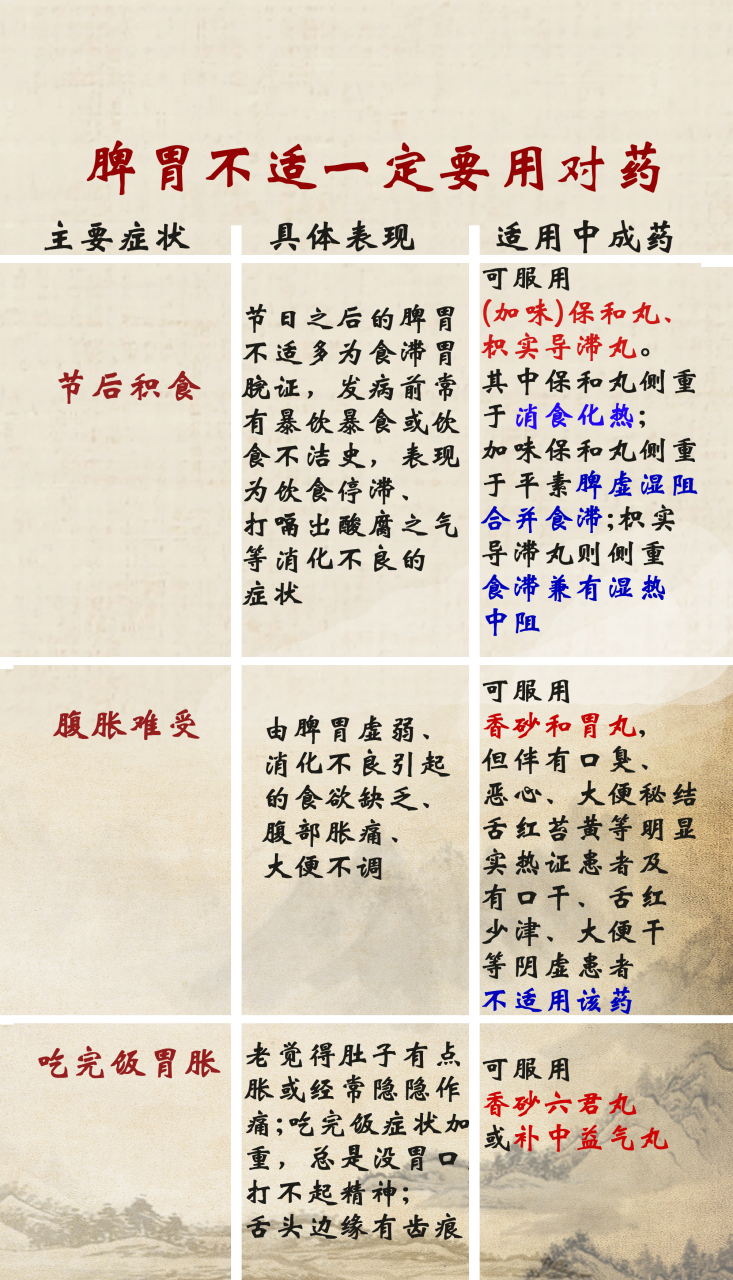 脾胃不适一定要用对药
主要症状
具体表现
适用中成药
节后积食
节日之后的脾胃
不适多为食滞胃
脘证，发病前常
有暴饮暴食或饮
食不洁史，表现
为饮食停滞、
打嗝出酸腐之气
等消化不良的
症状
可服用
(加味)保和丸、
枳实导滞丸。
其中保和丸侧重
于消食化热;
加味保和丸侧重
于平素脾虚湿阻
合并食滞;枳实
导滞丸则侧重
食滞兼有湿热
中阻
腹胀难受
由脾胃虚弱、
消化不良引起
的食欲缺乏、
腹部胀痛、
大便不调
可服用
香砂和胃丸,
但伴有口臭、
恶心、大便秘结
舌红苔黄等明显
实热证患者及
有口干、舌红
少津、大便干
等阴虚患者
不适用该药
吃完饭胃胀
老觉得肚子有点
胀或经常隐隐作
痛;吃完饭症状加
重，总是没胃口
打不起精神;
舌头边缘有齿痕
可服用
香砂六君丸
或补中益气丸